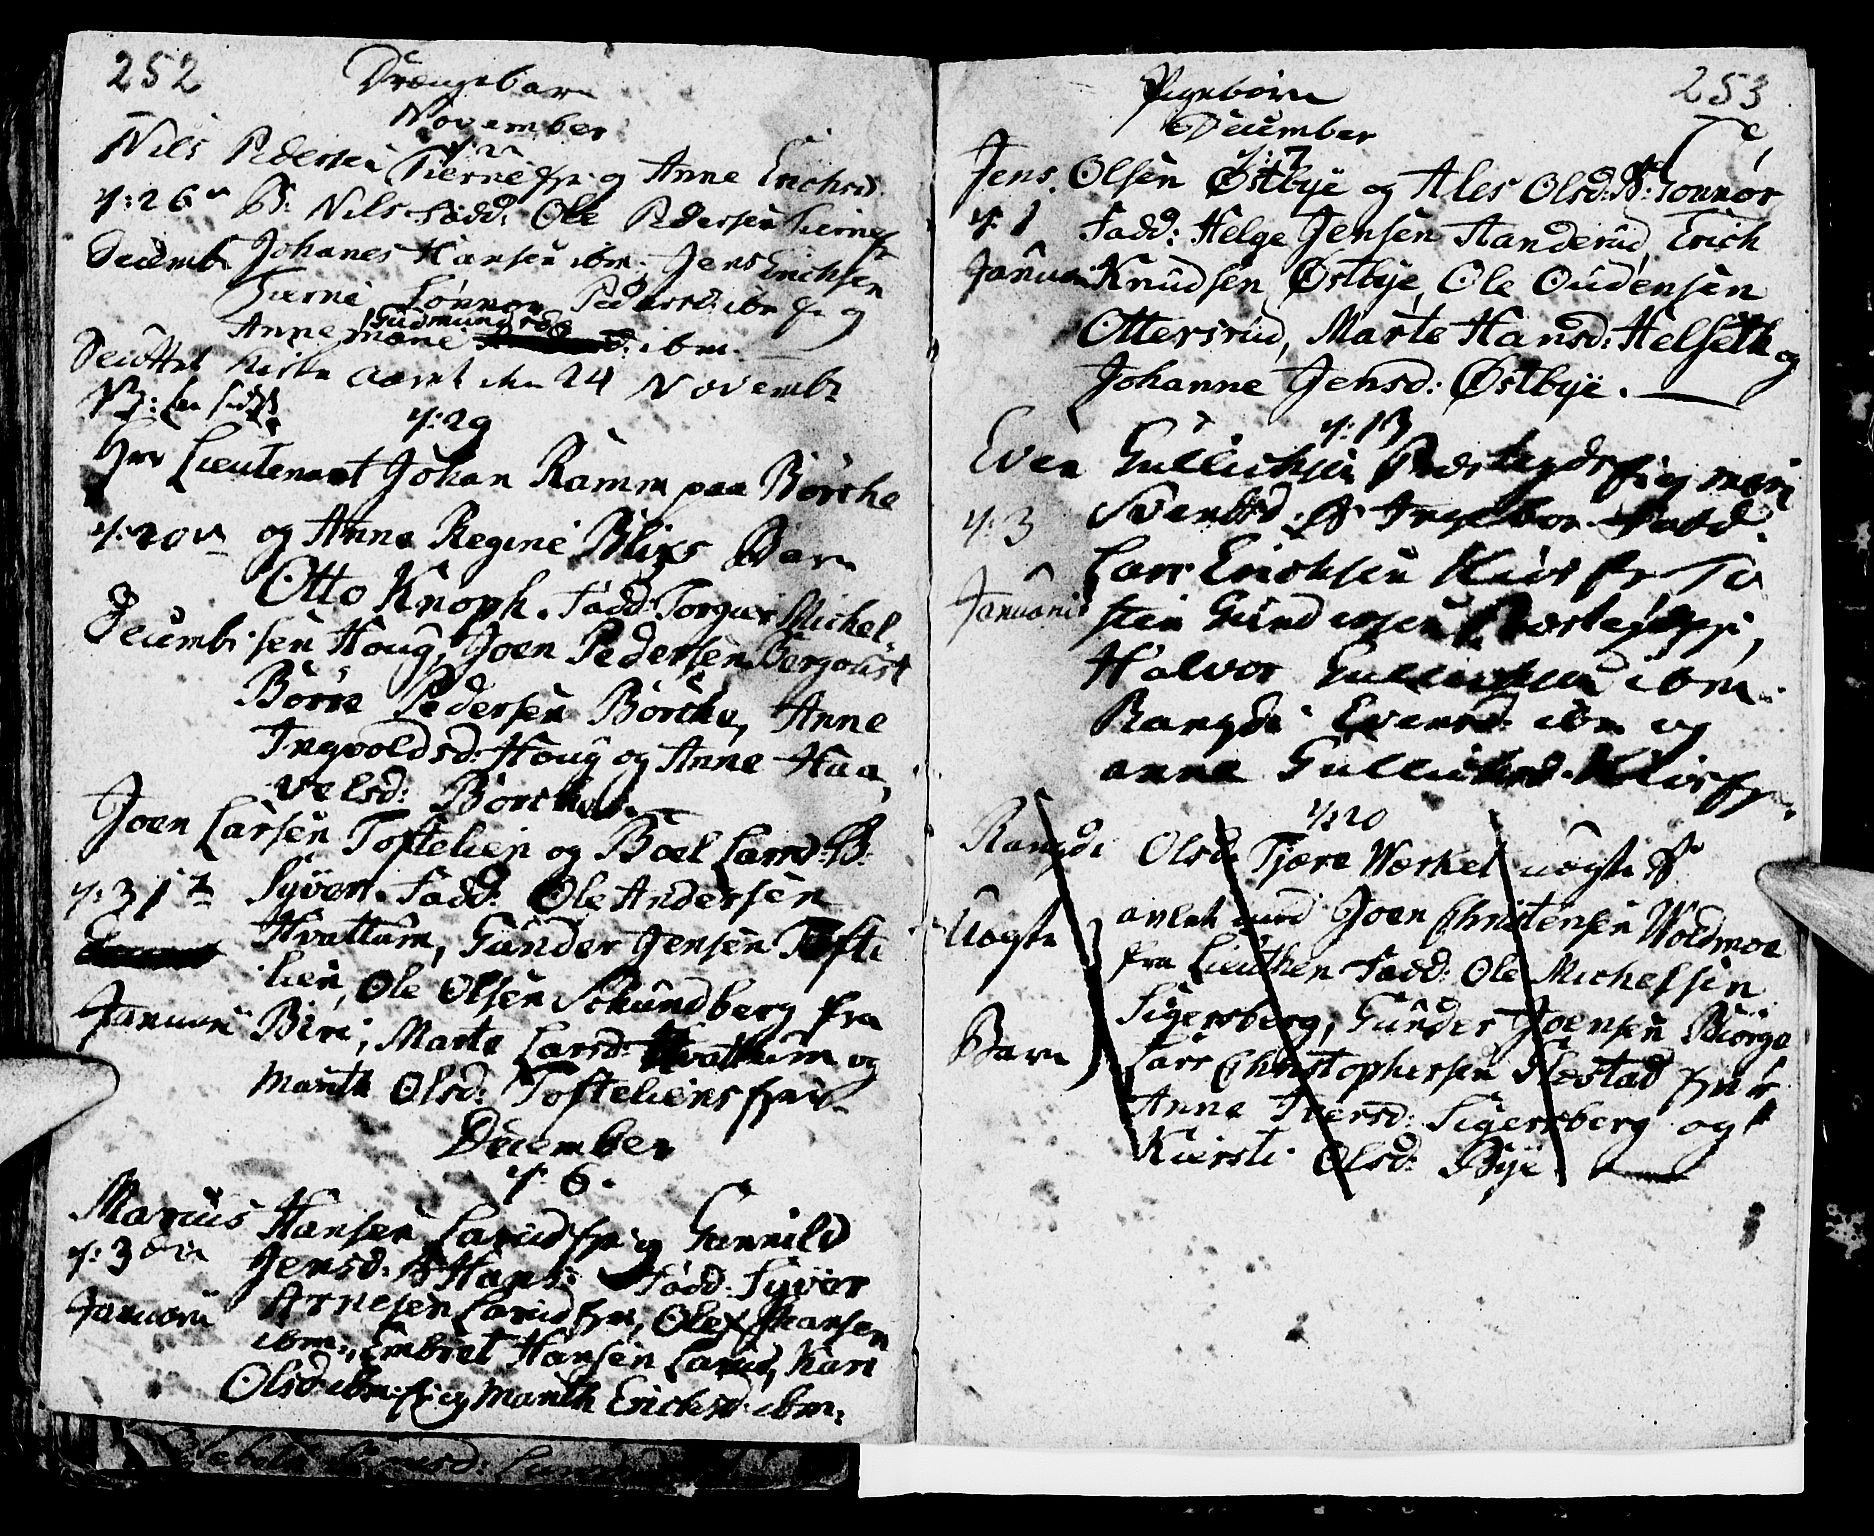 252
Drængebørn
November
Nils Pedersen Tierne fr. og Anne Erichsd.
d: 26 B: Nils Fadd: Ole Pedersen Tierne
Decemb: Johanes Hansen ibm, Jens Erichsen
Tierne, Lønnor Pedersd: ibm fr. og
Anne Marie Gudmundsd: ibm.
den 24 Novemb:
d: 29
Hr Lieutenant Johan Ramm paa Børche
d: 20 og Anne Regine Blixs Barn
Otto Knoph. Fadd: Torger Michel
Decemb: sen Houg, Joen Pedersen Bergqvist
Børre Pedersen Børche, Anne
Ingvoldsd: Houg og Anne Haa
velsd: Børche
Joen Larsen Toftelien og Boel Larsd: B:
d: 31 Syver. Fadd: Ole Andersen
Hvattum, Gunder Jensen Tofte
lien, Ole Olsen Schundberg fra
Januari Biri, Marte Larsd: Hvattum og
Marth Olsd: Tofteliens
December
d: 6.
Marcus Hansen Larud fr. og Gunnild
d: 3 Jensd: B Hans. Fadd: Syver
Januarii Arnesen Larud fr., Ole Hansen
ibm., Embret Hansen Larud, Kari
Olsd ibm: fr. og Marth Erichsd. ibm:
253
Pigebørn
December
d: 7
Jens Olsen Østbye og Ales Olsd: B: Lønnor
d: 1 Fadd: Helge Jensen Handerud, Erich
Januari Knudsen Østbye, Ole Oudensen
Ottersrud, Marte Hansd: Helseth og
Johanne Jensd: Østbye.
d: 13
Even Gullichsen Prestegds fr. og Mari
d: 3 Svendsd: B Ingebor Fadd:
Lars Erichsen Kiøs fr To
Januarii sten Gundersen
Halvor Gullichsen ibm.
Rangdi Evensd: ibm og
Anne Gullichsd.
d: 20
Rangdi Olsd: Tjære Werket uægte B
Uægte avlet med Joen Christensen Woldmoe
fra Lieuthen Fadd: Ole Michelsen
Sigersberg, Gunder Joensen Biørge
Barn Lars Christophersen Næstad
Anne Iversd: Sigersberg og
Kiersti Olsd: Bye.